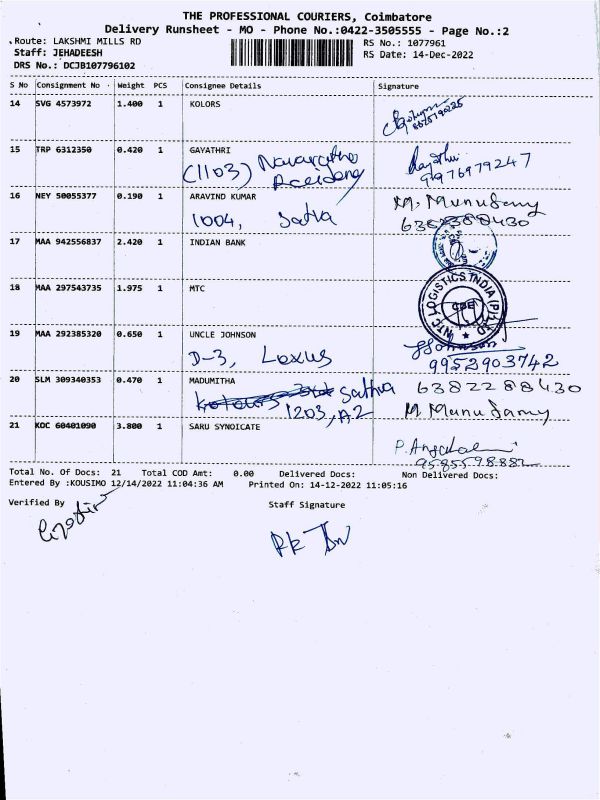 THE PROFESSIONAL COURIERS, Coimbatore
Delivery Runsheet - MO - Phone No.:0422-3505555 - Page No.:2
Route: LAKSHMI MILLS RD
RS No.: 1077961
Staff: JEHADEESH
RS Date: 14-Dec-2022
DRS No.: DCJB107796102
S No Consignment No Weight PCS Consignee Details Signature
14 SVG 4573972 1.400 1 KOLORS
15 TRP 6312350 0.420 1 GAYATHRI
(1103)
9976979247
16 NEY 50055377 0.190 1 ARAVIND KUMAR M. Munusamy
1004, Satva 6382288430
17 MAA 942556837 2.420 1 INDIAN BANK
18 MAA 297543735 1.975 1 MTC
NTC LOGISTICS INDIA (P) LTD
19 MAA 292385320 0.650 1 UNCLE JOHNSON Johnson
D-3, Lexus 9952903742
20 SLM 309340353 0.470 1 MADUMITHA 6382288430
Sathva
1203, A2 M. Munusamy
21 KOC 60401090 3.800 1 SARU SYNOICATE
9585598882
Total No. Of Docs: 21 Total COD Amt: 0.00 Delivered Docs: Non Delivered Docs:
Entered By :KOUSIMO 12/14/2022 11:04:36 AM Printed On: 14-12-2022 11:05:16
Verified By Staff Signature